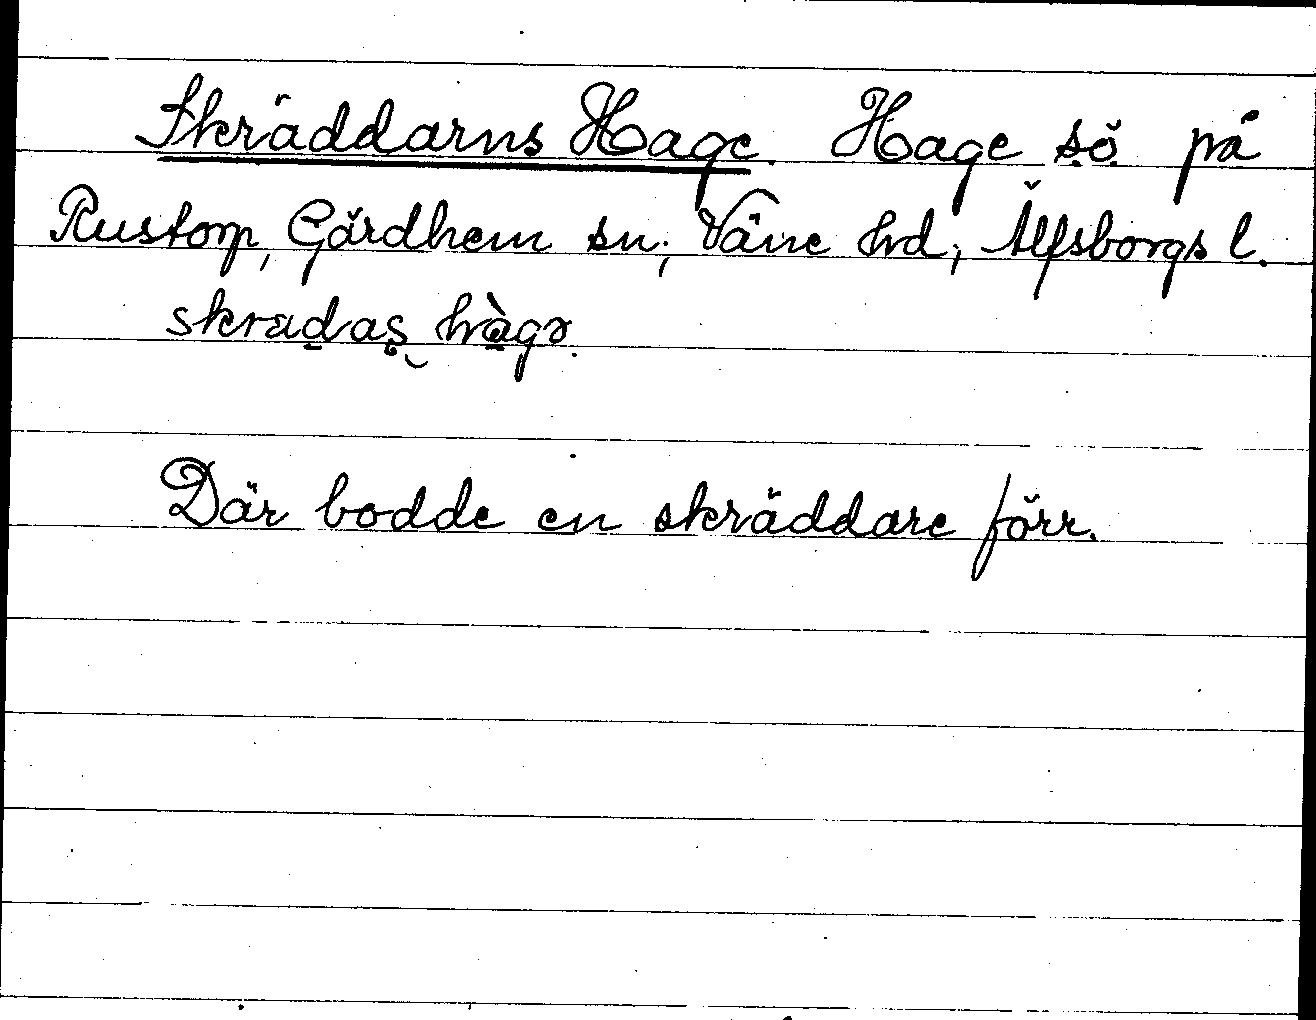 Skräddarns Hage. Hage sö på
Rustorp, Gärdhem sn; Väne hd; Älfsborgs l.
skradas hàgə.
Där bodde en skräddare förr.